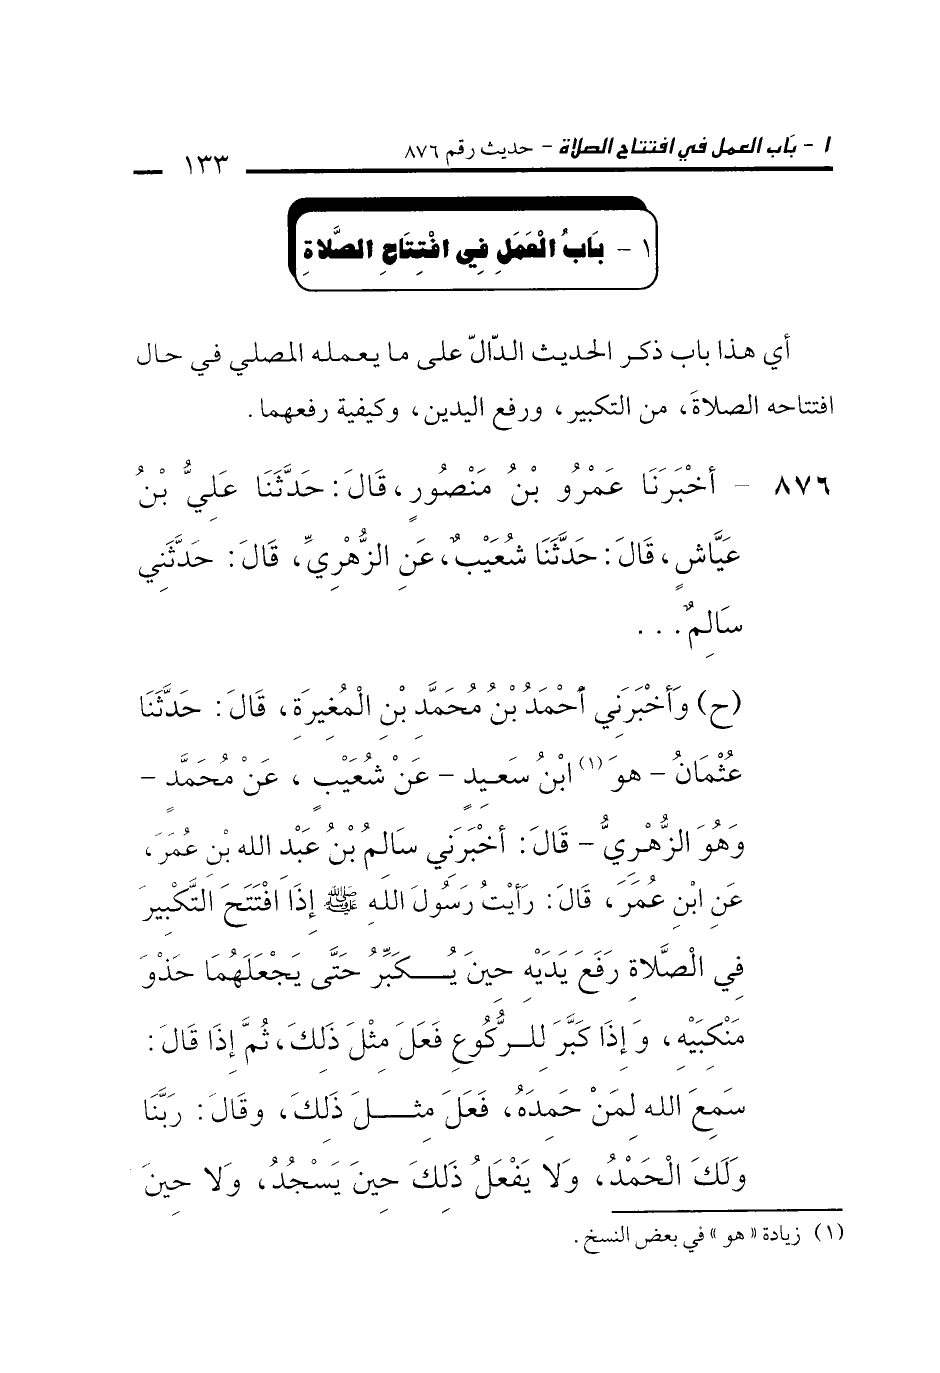 ١ - بَاب العمل في افتتاح الصلاة - حديث رقم ٨٧٦
١٣٣
١ - بَابُ الْعَمَلِ فِي افْتِتَاحِ الصَّلَاةِ
أي هذا باب ذكر الحديث الدّالّ على ما يعمله المصلي في حال
افتتاحه الصلاةَ، من التكبير، ورفع اليدين، وكيفية رفعهما.
٨٧٦ - أخْبَرَنَا عَمْرُو بْنُ مَنْصُورٍ، قَالَ: حَدَّثَنَا عَلِيُّ بْنُ
عَيَّاشٍ، قَالَ: حَدَّثَنَا شُعَيْبٌ، عَنِ الزُّهْرِيِّ، قَالَ: حَدَّثَنِي
سَالِمٌ...
(ح) وَأخْبَرَنِي أحْمَدُ بْنُ مُحَمَّدِ بْنِ الْمُغِيرَةِ، قَالَ: حَدَّثَنَا
عُثْمَانُ - هوَ (١) ابْنُ سَعِيدٍ - عَنْ شُعَيْبٍ، عَنْ مُحَمَّدٍ -
وَهُوَ الزُّهْرِيُّ - قَالَ: أخْبَرَنِي سَالِمُ بْنُ عَبْدِ الله بْنِ عُمَرَ،
عَنِ ابْنِ عُمَرَ، قَالَ: رَأيْتُ رَسُولَ اللهِ ﷺ إذَا افْتَتَحَ التَّكْبِيرَ
فِي الْصَّلَاةِ رَفَعَ يَدَيْهِ حِينَ يُــكَبِّرُ حَتَّى يَجْعَلَهُمَا حَذْوَ
مَنْكِبَيْهِ، وَإِذَا كَبَّرَ لِلــرُّكُوعِ فَعَلَ مِثْلَ ذَلِكَ، ثُمَّ إِذَا قَالَ:
سَمِعَ الله لِمَنْ حَمِدَهُ، فَعَلَ مِثـــلَ ذَلِكَ، وقَالَ: رَبَّنَا
وَلَكَ الْحَمْدُ، وَلا يَفْعَلُ ذَلِكَ حِينَ يَسْجُدُ، وَلا حِينَ
(١) زيادة «هو» في بعض النسخ.